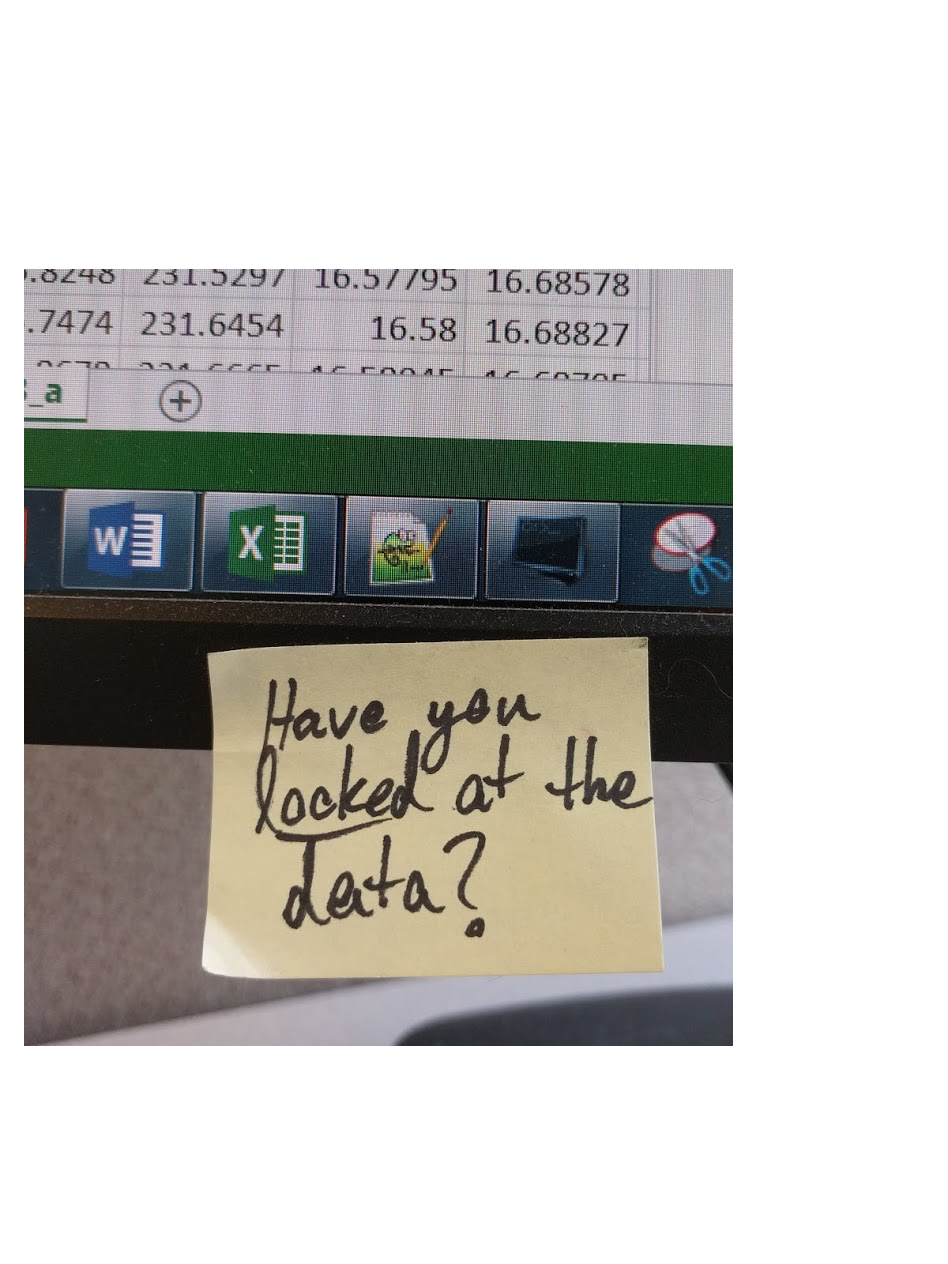 .8248 231.5297 16.57795 16.68578
.7474 231.6454 16.58 16.68827
_a
W
X
Have you
looked at the
data?